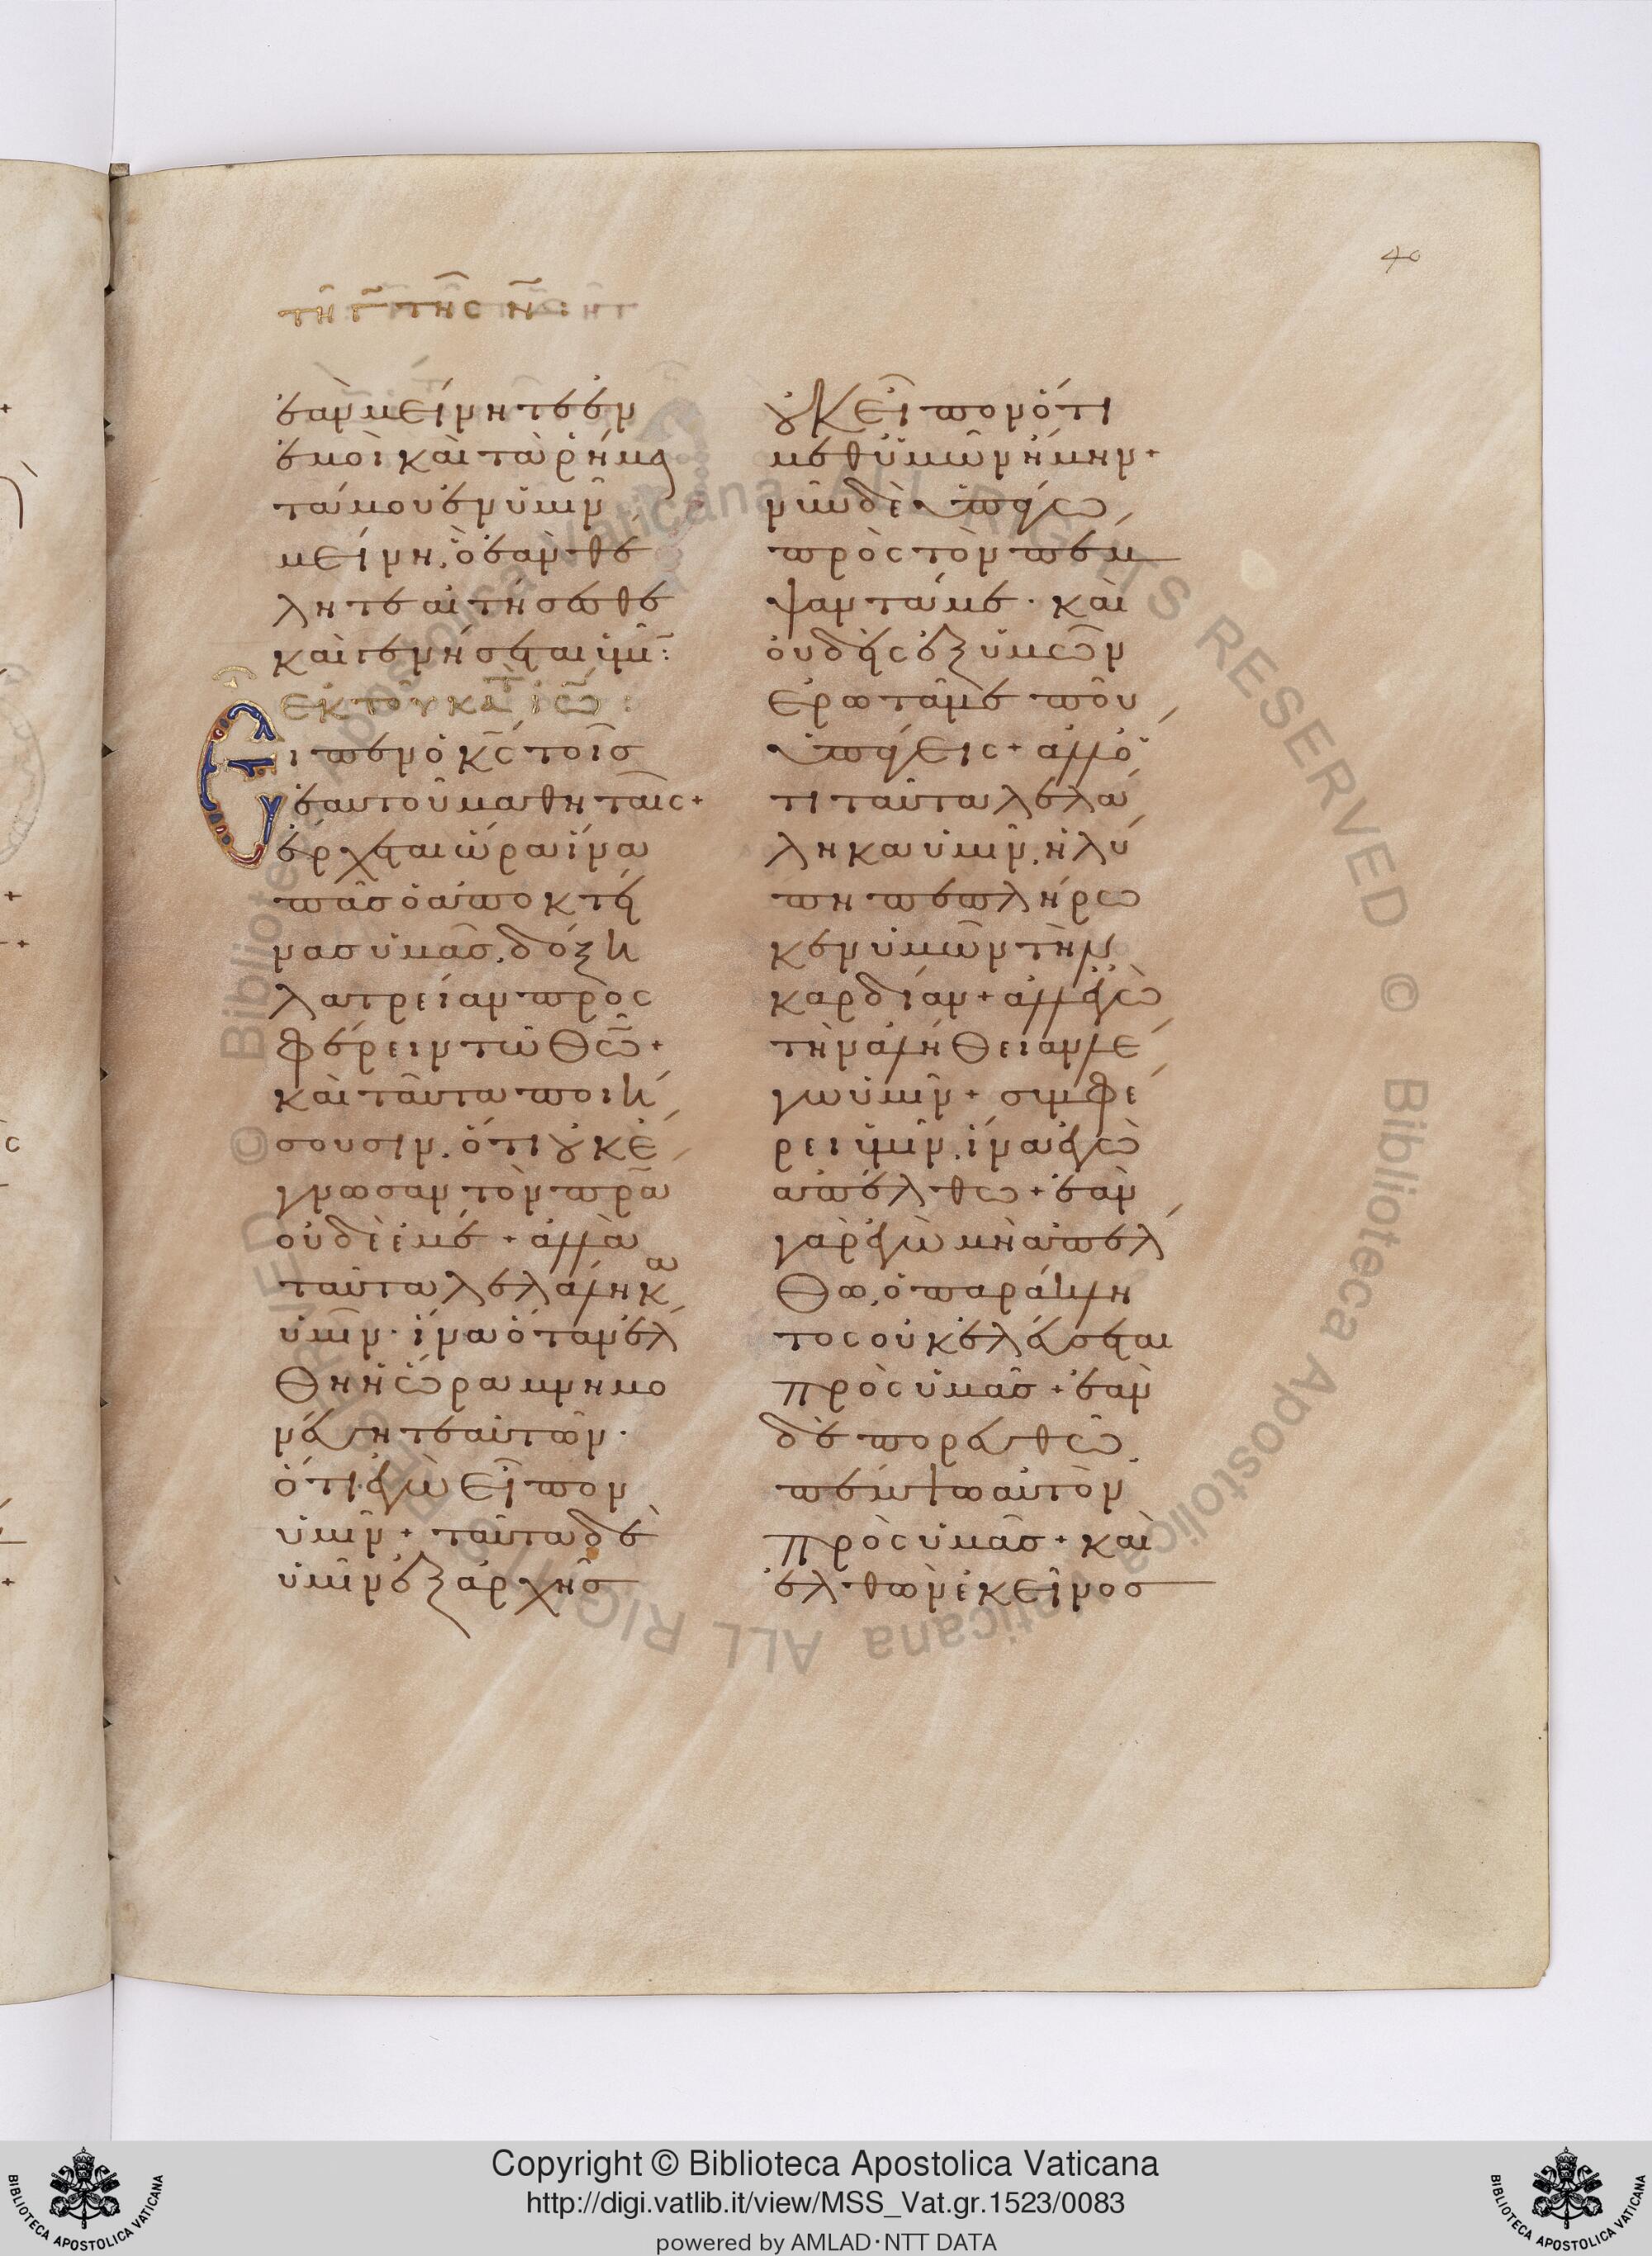 40
τῆ γ̄ τῆς ν̄:
ἐὰν μείνητε ἐν
ἐμοὶ καὶ τὰ ῥήμα
τά μου ἐν ὑμῖν
μείνη, ὃ ἐὰν θέ
λητε αἰτήσασθε
καὶ γενήσεται ὑμῖν:
ἐκ τοῦ κατ ἰω:
Εἶπεν ὁ κς τοῖς
ἑαυτοῦ μαθηταῖς+
ἔρχεται ὥρα ἵνα
πᾶς ὁ ἀποκτεί
νας ὑμᾶς, δόξη
λατρείαν προσ
φέρειν τῶ Θῶ+
καὶ ταῦτα ποιή
σουσιν, ὅτι οὐκ ἔ
γνωσαν τὸν πρα
οὐδὲ ἐμέ+ ἀλλὰ
ταῦτα λελάληκα
ὑμῖν· ἵνα ὅταν ἔλ
Θη ἡ ὥρα μνημο
νεύητε αὐτῶν·
ὅτι ἐγὼ εἶπον
ὑμῖν+ ταῦτα δὲ
ὑμῖν ἐξ ἀρχῆς
οὐκ εἶπον ὅτι
μεθ ὑμῶν ἤμην+
νῦν δὲ ὑπάγω
πρὸς τὸν πέμ
ψαντά με· καὶ
οὐδεὶς ἐξ ὑμῶν
ἐρωτᾶ με ποῦ
ὑπάγεις+ ἀλλ ὅ
τι ταῦτα λελά
ληκα ὑμῖν, ἡ λύ
πη πεπλήρω
κεν ὑμῶν τὴν
καρδίαν+ ἀλλ ἐγὼ
τὴν ἀλήΘειαν λέ
γω ὑμῖν+ συμφέ
ρει ὑμῖν, ἵνα ἐγὼ
ἀπέλθω+ ἐὰν
γὰρ ἐγὼ μὴ ἀπέλ
Θω, ὁ παράκλη
τος οὐκ ἐλεύσεται
πρὸς ὑμᾶς+ ἐὰν
δὲ πορευθῶ
πέμψω αὐτὸν
πρὸς ὑμᾶς+ καὶ
ἐλθὼν ἐκεῖνος
Copyright © Biblioteca Apostolica Vaticana
http://digi.vatlib.it/view/MSS_Vat.gr.1523/0083
powered by AMLAD·NTT DATA